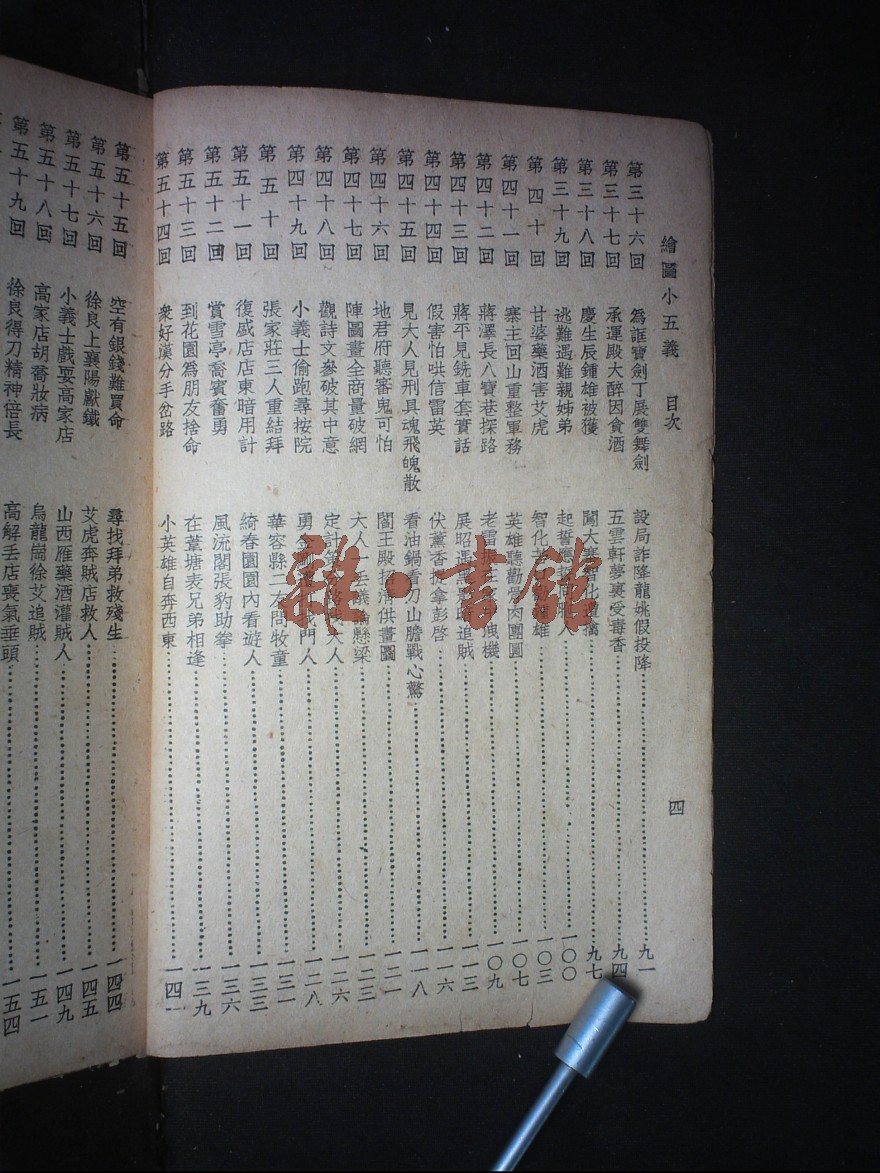 繪圖小五義 目次 四
第三十六回 爲誆寶劍丁展雙舞劍 設局詐降龍姚假投降 九一
第三十七回 承運殿大醉因貪酒 五雲軒夢裏受毒香 九四
第三十八回 慶生辰鍾雄被獲 闖大寨智化 擒 九七
第三十九回 逃難遇難親姊弟 起誓應 人 一〇〇
第四十回 甘婆藥酒害艾虎 智化 雄 一〇三
第四十一回 寨主回山重整軍務 英雄聽勸骨肉團圓 一〇七
第四十二回 蔣澤長八寶巷探路 老雷 洩機 一〇九
第四十三回 蔣平見銑車套實話 展昭遇 追賊 一一三
第四十四回 假害怕哄信雷英 伏薰香 拿彭啓 一一六
第四十五回 見大人見刑具魂飛魄散 看油鍋看刀山膽戰心驚 一一八
第四十六回 地君府聽審鬼可怕 閻王殿招清供畫圖 一二一
第四十七回 陣圖畫全商量破網 大人一丟議論懸梁 一二三
第四十八回 觀詩文參破其中意 定計 大人 一二六
第四十九回 小義士偷跑尋按院 勇金剛 門人 一二八
第五十回 張家莊三人重結拜 華容縣二友問牧童 一三一
第五十一回 復盛店店東暗用計 綺春園園內看遊人 一三三
第五十二回 賞雪亭喬賓奮勇 風流閣張豹助拳 一三六
第五十三回 到花園爲朋友捨命 在葦塘表兄弟相逢 一三九
第五十四回 衆好漢分手岔路 小英雄自奔西東 一四一
第五十五回 空有銀錢難買命 尋找拜弟救殘生 一四四
第五十六回 徐良上襄陽獻鐵 艾虎奔賊店救人 一四五
第五十七回 小義士戲耍高家店 山西雁藥酒灌賊人 一四九
第五十八回 高家店胡喬妝病 烏龍崗徐艾追賊 一五一
第五十九回 徐良得刀精神倍長 高解丟店喪氣垂頭 一五四
雜·書館